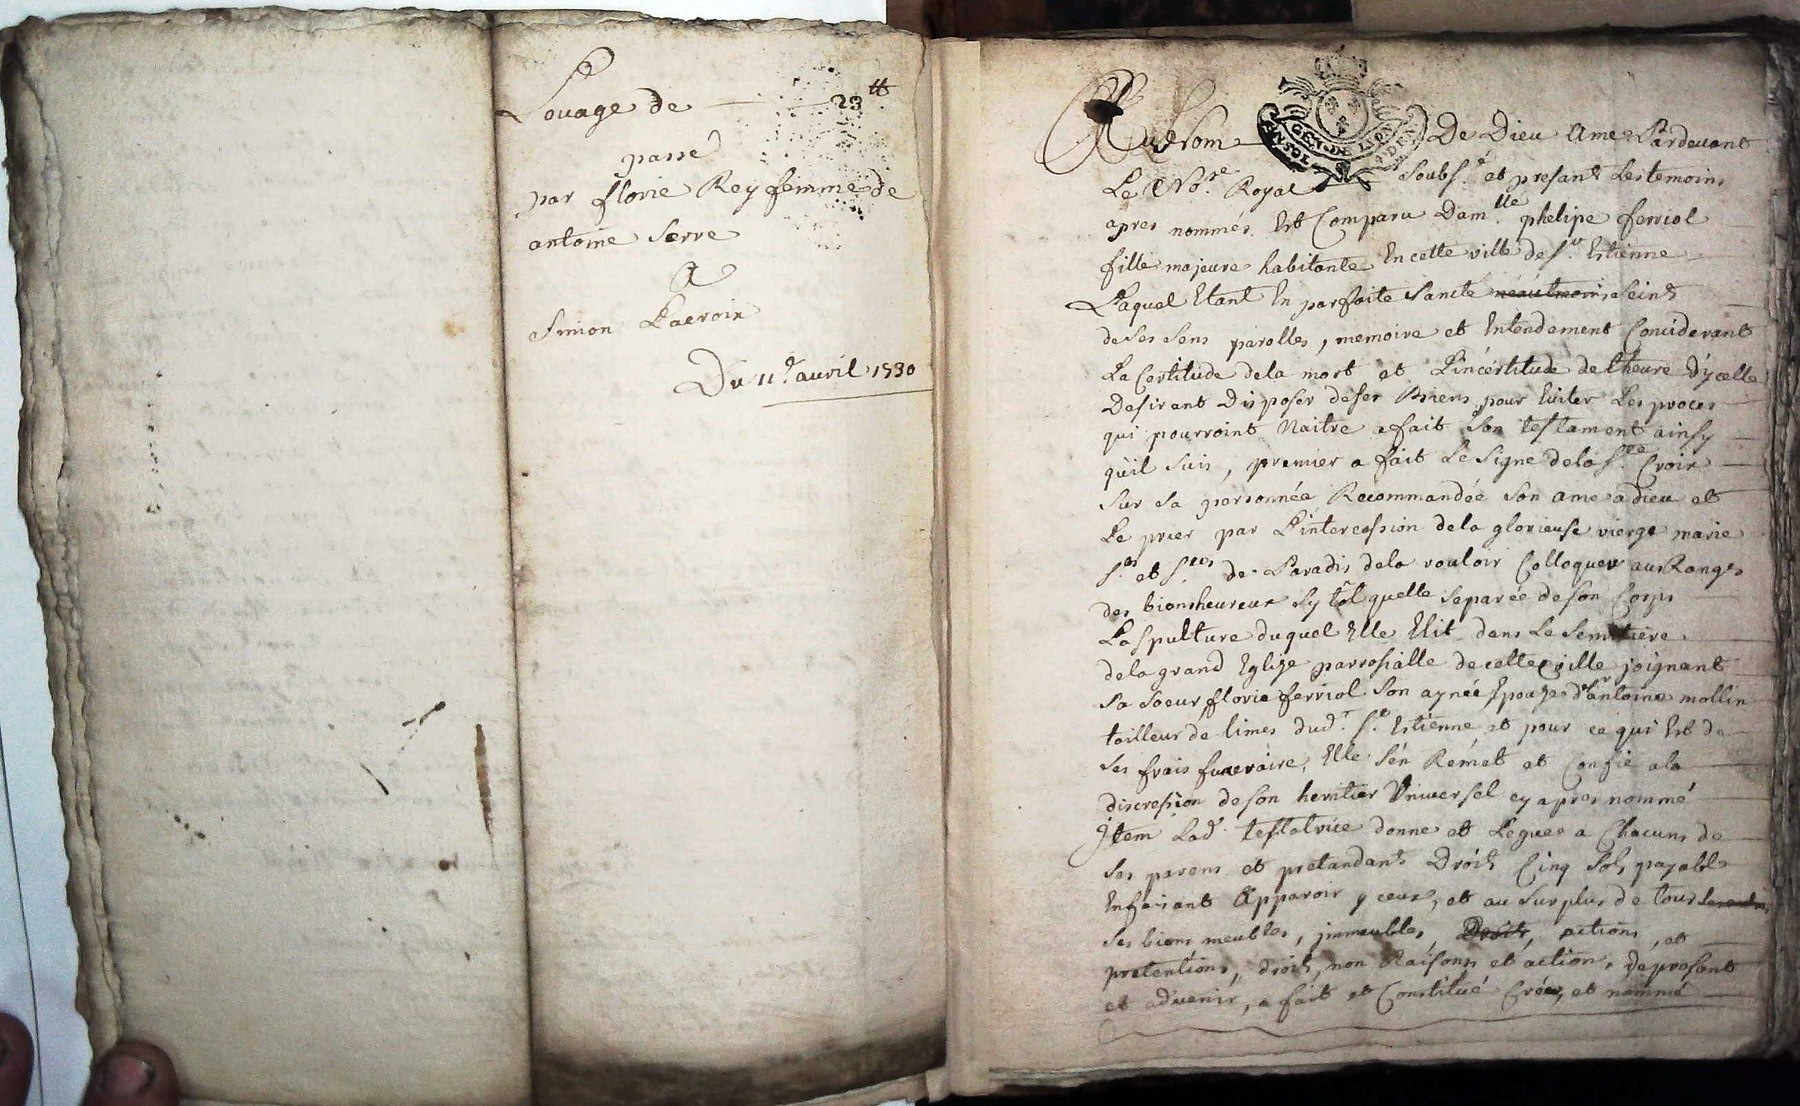 Louage de 23 ₶
passé
par florie Rey femme de
antoine Serre
A
Simon Lacroix
Du 11.e avril 1730
Au Nom De Dieu Ame Pardevant
Le No.re Royal soubs.é et presant Les temoins
apres nommés Est Comparu Dam.lle phelipe ferriol
fille majeure habitante En cette ville de S.t Estienne
Laquel Etant En parfaite Sancté neautmoins seine
de ses sens parolles, memoire et Entendement Conciderant
La Certitude dela mort et L'incértitude de l'heure D'ycelle
Desirant Disposér deses Biens pour Eviter Les proces
qui pourroint Naitre a fait Son testament ainsy
quil suis, premier a fait Le Signe dela S.te Croix
sur sa personnée Recommandée son ame a dieu et
Le prier par L'intercession dela glorieuse vierge marie
S.ts et S.tes de Paradis dela vouloir Colloquer au Range
des bienheureux sy tôt quelle Separée de son Corps
La spulture duquel Elle Elit dans Le Semitiere
dela grand Eglize parrosialle de cette ville joignant
sa soeur florie ferriol son aynée Epouze d'antoine mollin
tailleur de limes dud.t S.t Estienne et pour ce qui Est de
ses frais funeraire, Elle s'en Rémet et Confie a la
discression de son heritier Universel cy apres nommé
Jtem Lad. testatrice donne et Leguee a Chacuns de
ses parens et pretandans Droits Cinq Sols payable
Enfaisant Apparoir yceux, et au surplus de tous
ses biens meubles, jmmeubles, Droits, actions, et
pretentions, droits, non Raisons et action, de presant
et advenir, a fait et Constitué Créée, et nommé